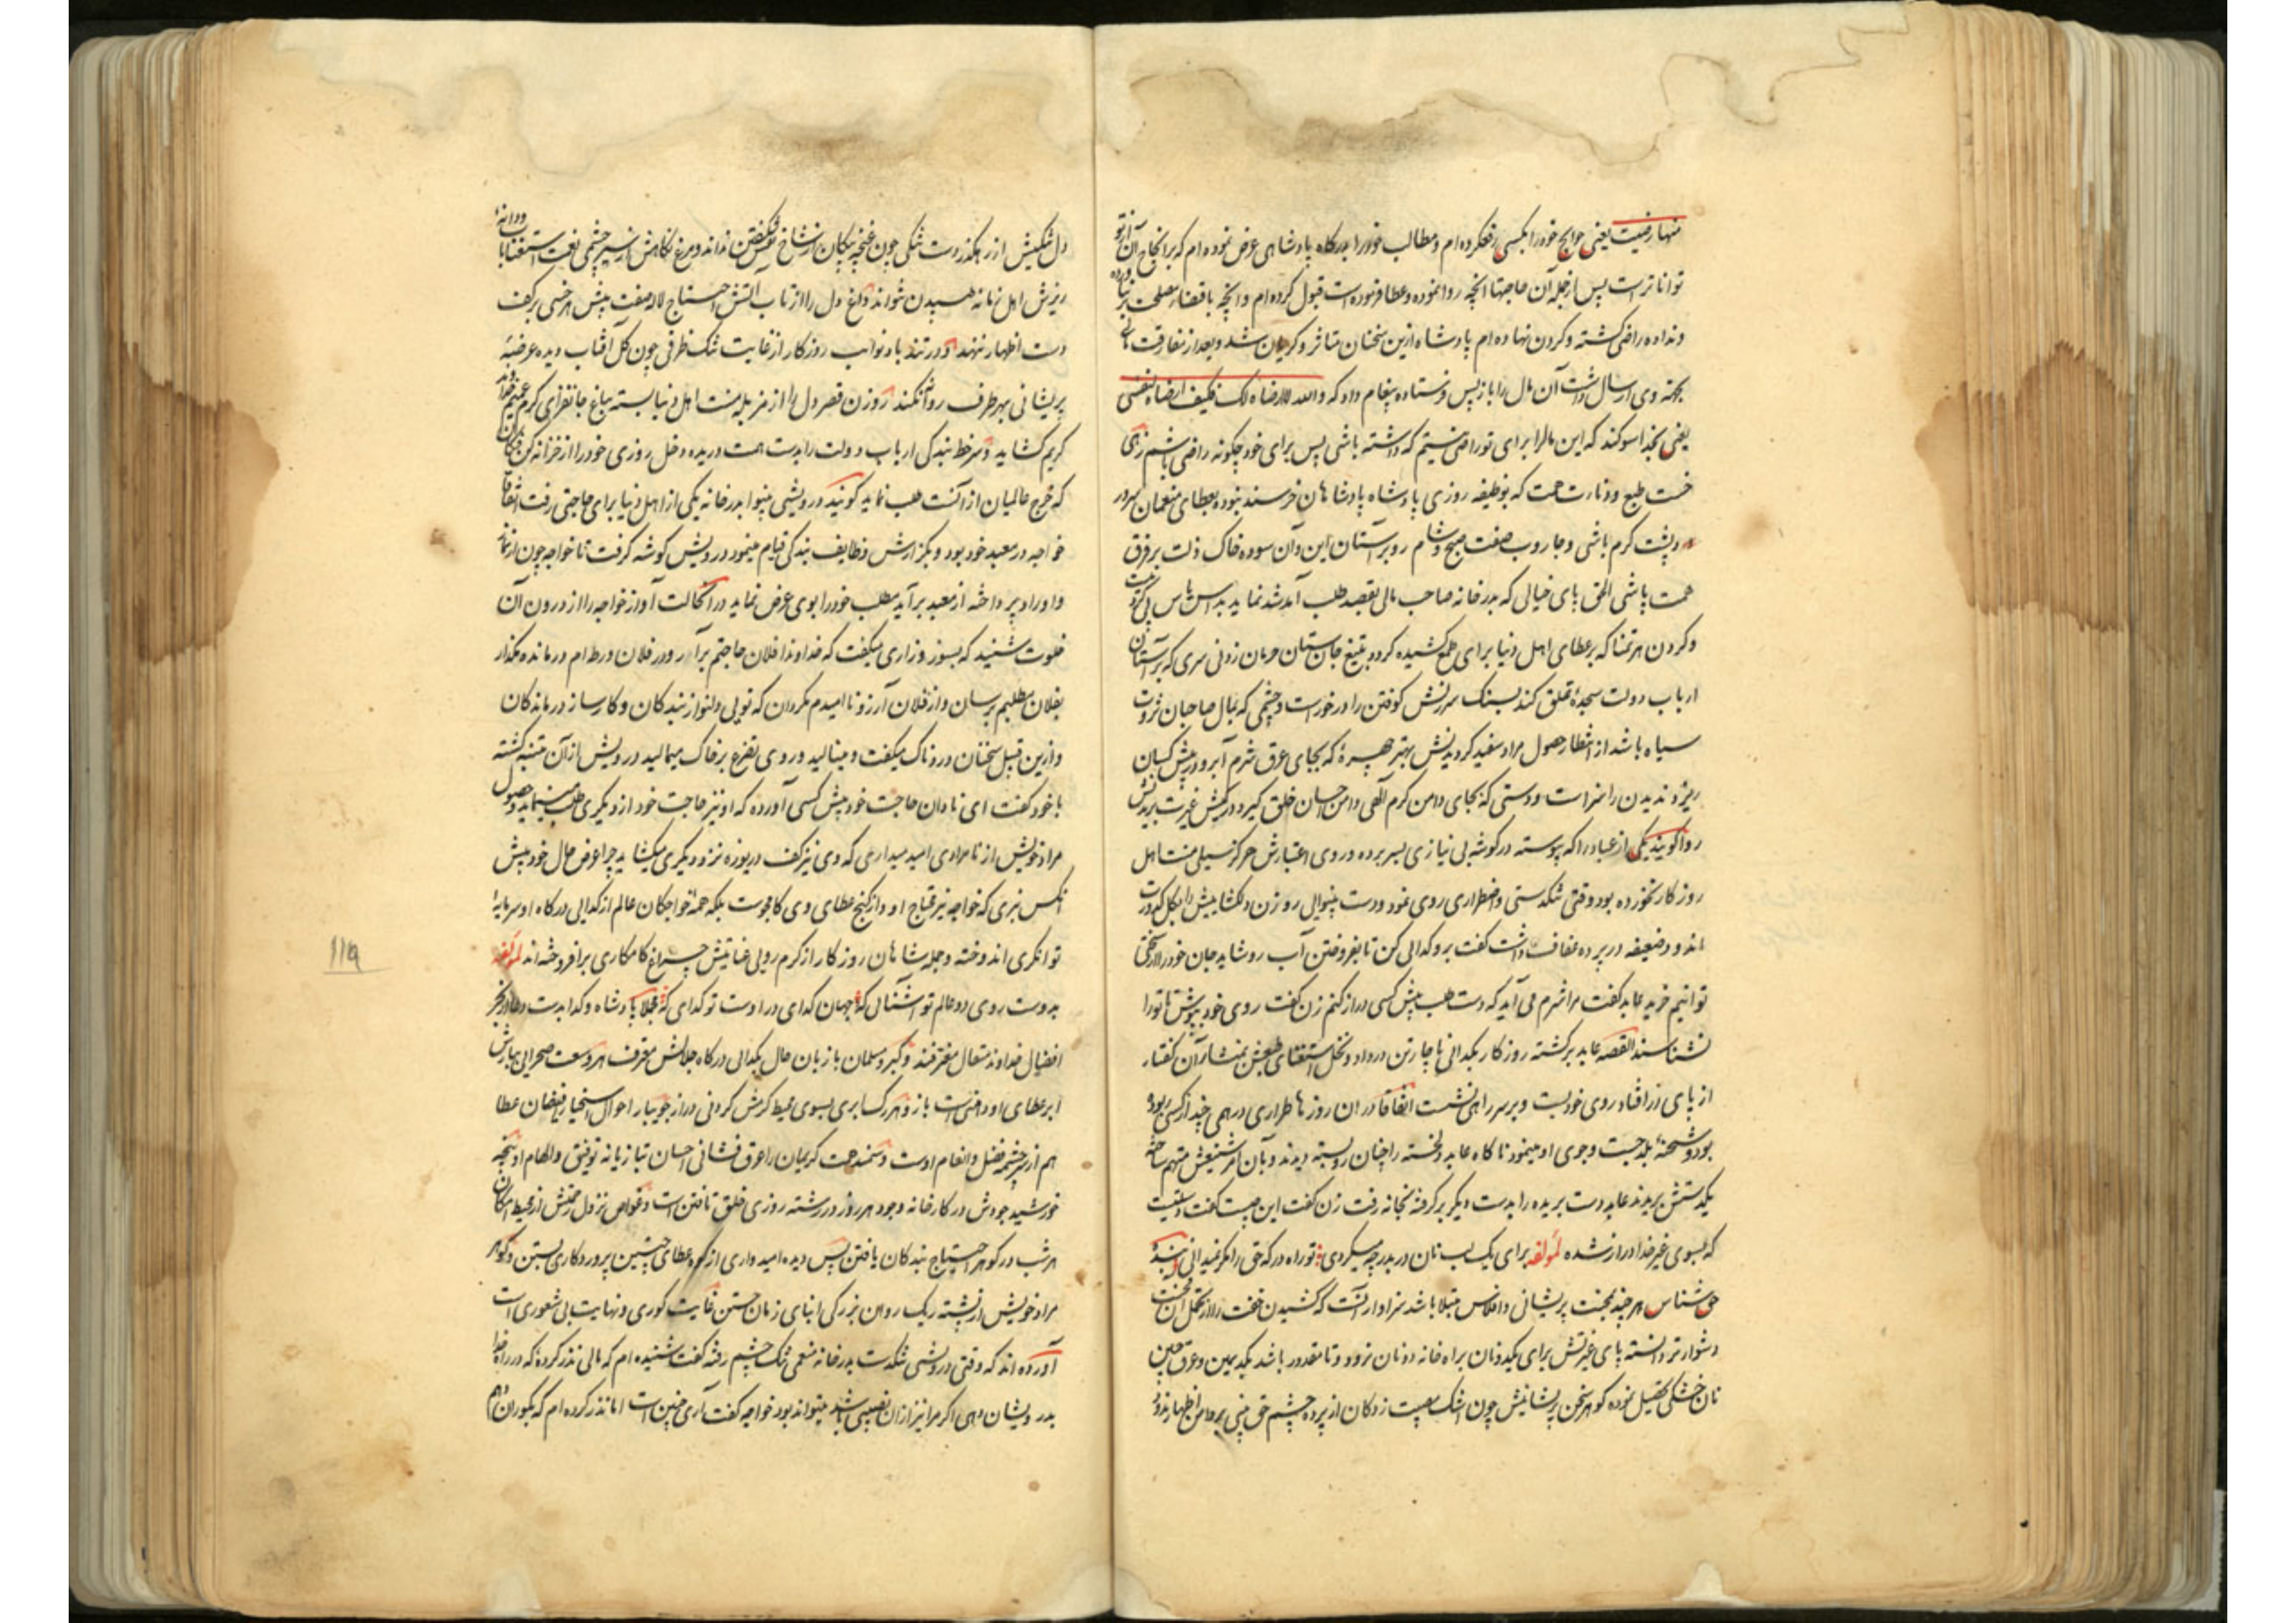 منها رضیت یعنی حوایج خود را بکسی رفع کرده ام و مطالب خود را بدرگاه پادشاهی عرض نموده ام که بر انجاح آن از تو
توانا تر است پس از جمله آن حاجتها انچه روا نموده و عطا فرموده است قبول کرده ام و انچه باقتضاء مصلحت بر نیاورده
و نداده راضی کشته و کردن نهاده ام پادشاه ازین سخنان متاثر و کریان شد و بعد از مفارقت مالی
بجهته وی ارسال داشت آن مال را باز پس فرستاده پیغام داد که والله لا ارضاه لک فکیف ارضاه لنفسی
یعنی بخدا سوکند که این مال را برای تو راضی نیستم که داشته باشی پس برای خود چکونه راضی باشم زهی
خست طبع و دنائت همت که بوظیفه روزی پادشاه پادشاهان خرسند نبوده بعطای منعمان سرور
و پشت کرم باشی و جاروب صفت صبح و شام رو بر آستان این و آن سوده خاک ذلت بر فرق
همت پاشی الحق پای خیالی که بدر خانه صاحب مالی بقصد طلب آمد شد نماید
و کردن هر تمنا که بر عطای اهل دنیا برای طمع کشیده کردد بتیغ جان ستان حرمان زدنی سری که بر آستان
ارباب دولت سجده تملق کند بسنک سرزنش کوفتن را در خور است و چشمی که بمال صاحبان ثروت
سیاه باشد از انتظار حصول مراد سفید کردیدنش بهتر چهره که بجای عرق شرم آبرو در پیش کسان
ریزد ندیدن را سزاست و دستی که بجای دامن کرم آلهی دامن احسان خلق کیرد در کیش غیرت بریدنش
روا کویند یکی از عباد را که پیوسته در کوشه بی نیازی بسر برده و روی اعتبارش هرکز سیلی منت اهل
روزکار نخورده بود وقتی تنکدستی و اضطراری روی نمود و دست بینوایی روزن دلکشاییش را بکل کدورت
اندود ضعیفه در پرده عفاف داشت کفت برو کدایی کن تا بفروختن آب رو شاید جان خود را از سختی
توانیم خرید عابد کفت مرا شرم می آید که دست طلب پیش کسی دراز کنم زن کفت روی خود بپوش تا تو را
نشناسند القصه عابد برکشته روزکار بکدایی ناچار تن در داد و نخل استغنای طبعش بمنشار آن کفتار
از پای در افتاد روی خود بست و بر سر راهی نشست اتفاقا در ان روز ها طراری درهمی چند از کسی ربوده
بود و شحنه بلد جست و جوی او مینمود ناکاه عابد دلخسته را چنان رو بسته دیدند و بآن امر شنیعش متهم ساخته
یکدستش بریدند عابد دست بریده را بدست دیکر بر کرفته بخانه رفت زن کفت این چیست کفت دستیست
که بسوی غیر خدا دراز شده لمؤلفه برای یک لب نان در بدر چه میکردی تو راه درکه حق را مکر نمیدانی بنده
حق شناس هر چند بمحنت پریشانی و افلاس مبتلا باشد سزاوار آنست که کشیدن خفت را از تحمل آن محنت
دشوارتر دانسته پای غیرتش برای یکدونان براه خانه دونان نرود و تا مقدور باشد بکد یمین و عرق جبین
نان خشکی تحصیل نموده کوهر سخن پریشانیش چون اشک مصیبت زدکان از پرده چشم حق بینی بر دامن اظهار ندود
دل تنکیش از رهکذر دست تنکی چون غنچه پیکان از شاخ تیر شکفتن نداند و مرغ نکاهش از سیر چشمی نعمت استغنا با و دانه
ریزش اهل زمانه طپیدن نتواند داغ دل را از تاب آتش احتیاج لاله صفت پیش هر خسی بر کف
دست اظهار ننهد و در تند باد نوائب روزکار از غایت تنک ظرفی چون کل آفتاب دیده عرضه
پریشانی بهر طرف رو نکند روزن قصر دل را از مزبله منت اهل دنیا بسته بباغ جانفزای کرم عمیم خداوند
کریم کشاید و سر خط بندکی ارباب دولت را بدست همت دریده دخل روزی خود را از خزانه کن فکان
که خرج عالمیان از آنست طلب نماید کویند درویشی بینوا بدر خانه یکی از اهل دنیا برای حاجتی رفت اتفاقا
خواجه در معبد خود بود و بکزارش وظایف بندکی قیام مینمود درویش کوشه کرفت تا خواجه چون از نماز
و اوراد پرداخته از معبد برآید مطلب خود را بوی عرض نماید در آن حالت آواز خواجه را از درون آن
خلوت شنید که بسوز و زاری میکفت که خداوندا فلان حاجتم برآر و در فلان ورطه ام درمانده مکذار
بفلان مطلبم برسان و از فلان آرزو نا امیدم مکردان که تویی دلنواز بندکان و کارساز درماندکان
و ازین قبیل سخنان دردناک میکفت و مینالید و روی تضرع بر خاک میمالید درویش از آن متنبه کشته
با خود کفت ای نادان حاجت خود پیش کسی آورده که او نیز حاجت خود از دیکری طلب مینماید و حصول
مراد خویش از نامرادی امید میداری که وی نیز کف دریوزه نزد دیکری میکشاید چرا عرض حال خود پیش
انکس نبری که خواجه نیز محتاج او و از کنج عطای وی کامجوست بلکه همه خواجکان عالم از کدایی درکاه او سرمایه
توانکری اندوخته و جمله شاهان روزکار از کرم رویی عنایتش چراغ کامکاری بر افروخته اند لمؤلفه
بدوست روی دو عالم تو آشنای که جهان کدای در اوست تو کدای که مجلا پادشاه و کدا بدست دعا در بحر
افضال خداوند متعال مغترفند و کبر و مسلمان با زبان حال بکدایی درکاه جلالش معترف هر وسعت صحرایی بهارش
ابر عطای او دستی است باز و هر رکسا بری بسوی محیط کرمش کردنی دراز جویبار احوال اسخیا را فیضان عطا
هم از سرچشمه فضل و انعام اوست و سمند همت کریمان را عرق فشانی احسان بتازیانه توفیق و الهام او پنجه
خورشید جودش در کارخانه وجود هر روز در رشته روزی خلق تافتن است و غواص نزول رحمتش از محیط امکان
هر شب در کوهر احتیاج بندکان یافتن پس دیده امیدواری از کوه عطای چنین پروردکاری بستن و کوهر
مراد خویش از پشته ریک روان بزرکی ابنای زمان جستن غایت کوری و نهایت بی شعوری است
آورده اند که وقتی درویشی تنکدست بدر خانه منعمی تنک چشم رفته کفت شنیده ام که مالی نذر کرده که در راه خدا
بدرویشان دهی اکر مرا نیز از آن نصیبی باشد میتواند بود خواجه کفت آری چنین است اما نذر کرده ام که بکوران دهم
۱۱۹